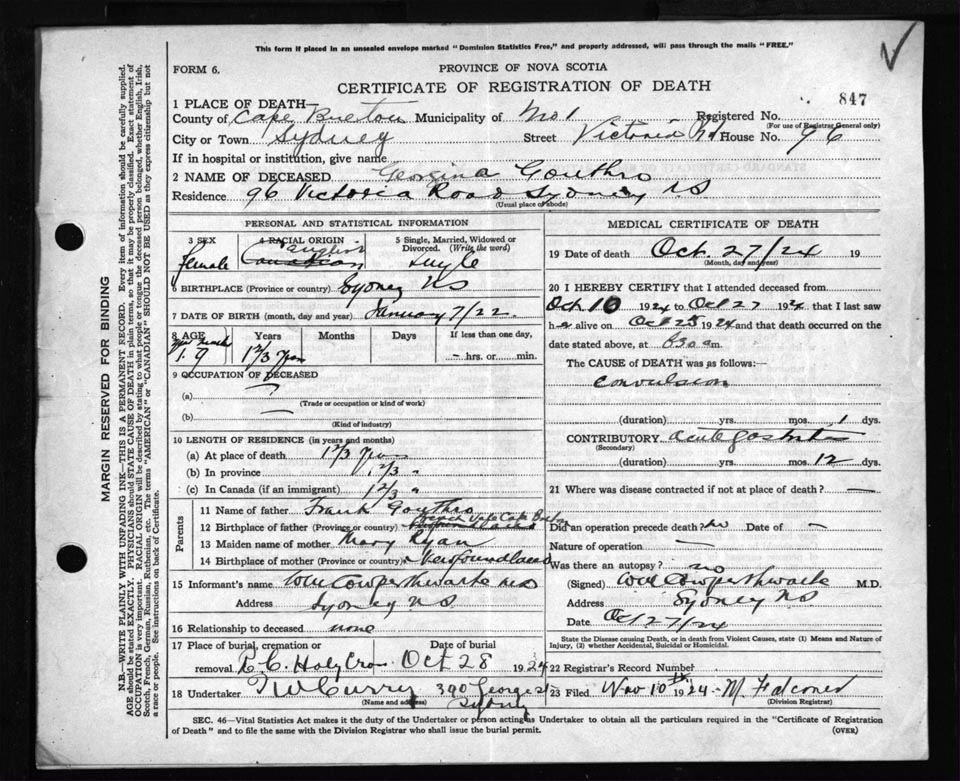 This form if placed in an unsealed envelope marked "Dominion Statistics Free," and properly addressed, will pass through the mails "FREE."
FORM 6.
PROVINCE OF NOVA SCOTIA
CERTIFICATE OF REGISTRATION OF DEATH
847
1 PLACE OF DEATH—
County of Cape Breton Municipality of No 1 Registered No.
(For use of Registrar General only)
City or Town Sydney Street Victoria Rd House No. 96
If in hospital or institution, give name
2 NAME OF DECEASED Georgina Gouthro
Residence 96 Victoria Road Sydney NS
(Usual place of abode)
PERSONAL AND STATISTICAL INFORMATION
3 SEX female
4 RACIAL ORIGIN English Canadian
5 Single, Married, Widowed or Divorced. (Write the word) single
6 BIRTHPLACE (Province or country) Sydney NS
7 DATE OF BIRTH (month, day and year) January 7/22
8 AGE Years Months Days If less than one day,
1. 9 1 2/3 yrs – hrs. or min.
9 OCCUPATION OF DECEASED
(a) —
(Trade or occupation or kind of work)
(b)
(Kind of industry)
10 LENGTH OF RESIDENCE (in years and months)
(a) At place of death 1 2/3 yrs
(b) In province 1 2/3 "
(c) In Canada (if an immigrant) 1 2/3 "
Parents
11 Name of father Frank Gouthro
12 Birthplace of father (Province or country) French Vale Cape Breton
13 Maiden name of mother Mary Ryan
14 Birthplace of mother (Province or country) Newfoundland
15 Informant's name Wm Cowperthwaite MD
Address Sydney NS
16 Relationship to deceased none
17 Place of burial, cremation or removal R.C. Holy Cross Date of burial Oct 28 1924
18 Undertaker T W Curry 390 George st
(Name and address) Sydney
MEDICAL CERTIFICATE OF DEATH
19 Date of death Oct. 27/24 19
(Month, day and year)
20 I HEREBY CERTIFY that I attended deceased from
Oct 10 1924 to Oct 27 1924 that I last saw
h-er alive on Oct 25 1924 and that death occurred on the
date stated above, at 630 a m.
The CAUSE OF DEATH was as follows:
convulsion
(duration) yrs. mos. 1 dys.
CONTRIBUTORY acute
(Secondary)
(duration) yrs. mos. 12 dys.
21 Where was disease contracted if not at place of death? —
Did an operation precede death? no Date of —
Nature of operation —
Was there an autopsy? no
(Signed) Wm Cowperthwaite M.D.
Address Sydney NS.
Date Oct 27/24
State the Disease causing Death, or in death from Violent Causes, state (1) Means and Nature of Injury, (2) whether Accidental, Suicidal or Homicidal.
22 Registrar's Record Number
23 Filed Nov 10th 1924 M Falconer
(Division Registrar)
SEC. 46—Vital Statistics Act makes it the duty of the Undertaker or person acting as Undertaker to obtain all the particulars required in the "Certificate of Registration
of Death" and to file the same with the Division Registrar who shall issue the burial permit.
(OVER)
MARGIN RESERVED FOR BINDING
N.B.—WRITE PLAINLY WITH UNFADING INK—THIS IS A PERMANENT RECORD. Every item of information should be carefully supplied.
AGE should be stated EXACTLY. PHYSICIANS should STATE CAUSE OF DEATH in plain terms, so that it may be properly classified. Exact statement of
OCCUPATION is very important. RACIAL ORIGIN will be described by stating to what people or tongue the deceased person belonged, whether English, Irish,
Scotch, French, German, Russian, Ruthenian, etc. The terms "AMERICAN" or "CANADIAN" SHOULD NOT BE USED as they express citizenship but not
a race or people. See instructions on back of Certificate.